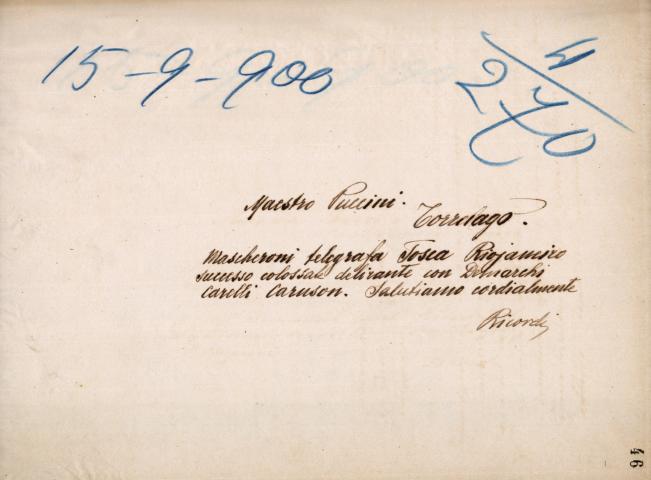 15-9-900
4/270
Maestro Puccini.
Torrelago.
Mascheroni telegrafa Tosca Riojaniro
successo colossale delirante con Demarchi
Carelli Caruson. Salutiamo cordialmente
Ricordi
46